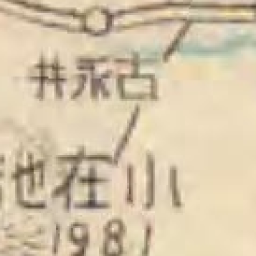 井永古
池在小
1981